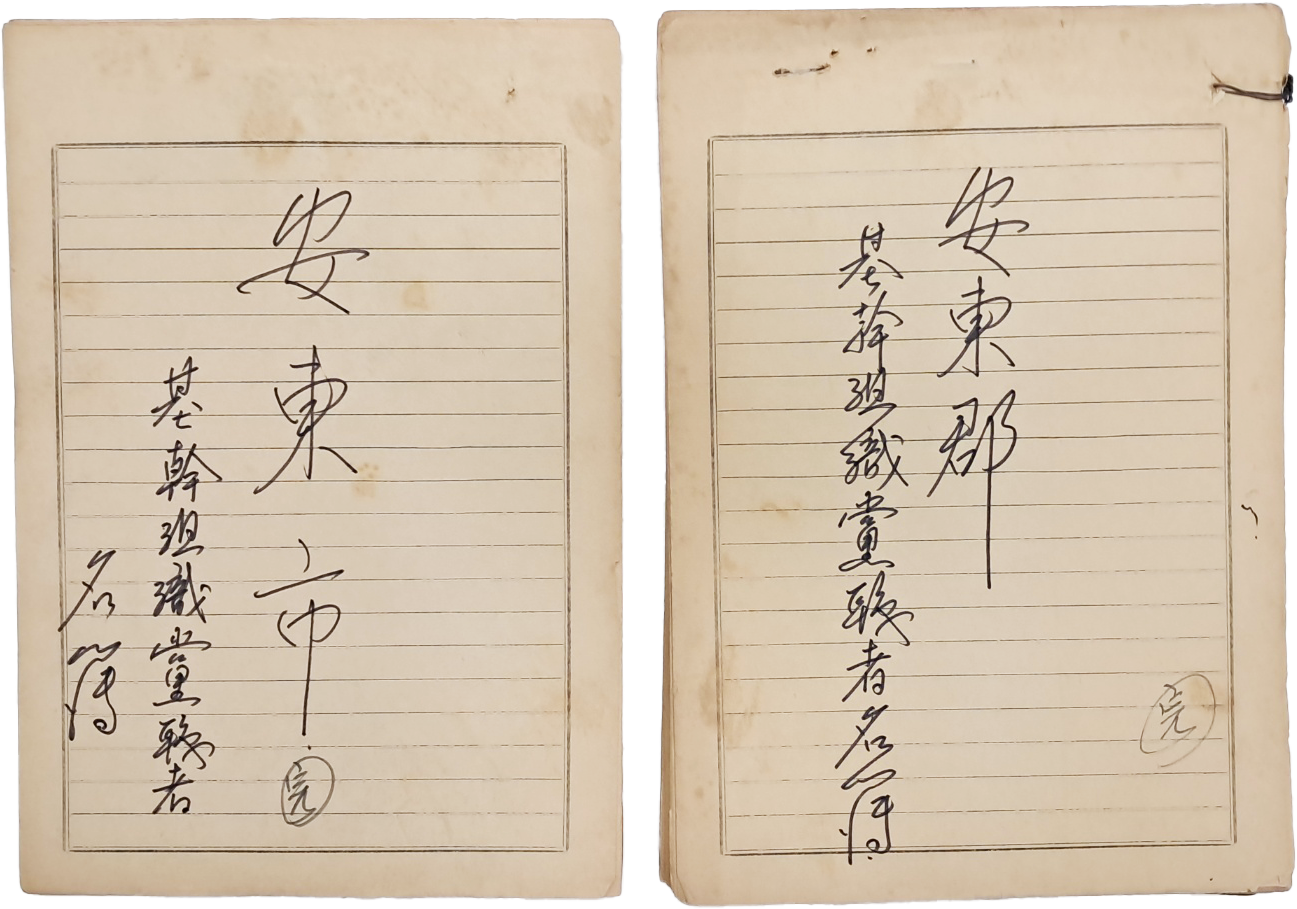 安東市
基幹組織黨職者
名簿
完
安東郡
基幹組織黨職者名簿
完